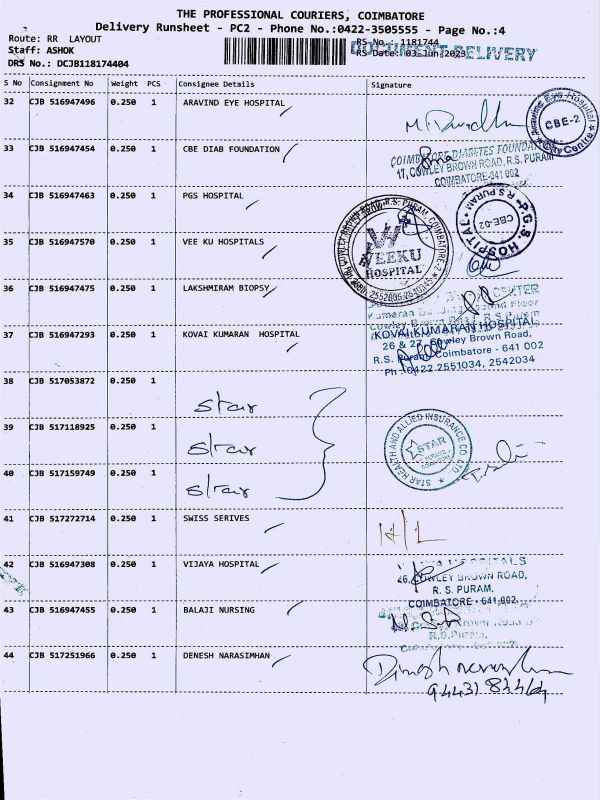 THE PROFESSIONAL COURIERS, COIMBATORE
Delivery Runsheet - PC2 - Phone No.:0422-3505555 - Page No.:4
Route: RR LAYOUT
RS No.: 1181744
Staff: ASHOK
RS Date: 03-Jun-2023
DOCUMENT DELIVERY
DRS No.: DCJB118174404
S No Consignment No Weight PCS Consignee Details Signature
32 CJB 516947496 0.250 1 ARAVIND EYE HOSPITAL
CBE-2
33 CJB 516947454 0.250 1 CBE DIAB FOUNDATION
COIMBATORE DIABETES FOUNDATION
17, COWLEY BROWN ROAD, R.S. PURAM
COIMBATORE-641 002
34 CJB 516947463 0.250 1 PGS HOSPITAL
P.G.S. HOSPITAL
CBE-02
R.S.PURAM
35 CJB 516947570 0.250 1 VEE KU HOSPITALS
VEEKU
HOSPITAL
36 CJB 516947475 0.250 1 LAKSHMIRAM BIOPSY
37 CJB 516947293 0.250 1 KOVAI KUMARAN HOSPITAL
KOVAI KUMARAN HOSPITAL
26 & 27, Cowley Brown Road,
R.S. Puram, Coimbatore - 641 002
Ph : 0422 2551034, 2542034
38 CJB 517053872 0.250 1
star
39 CJB 517118925 0.250 1
star
STAR HEALTH AND ALLIED INSURANCE CO. LTD.
STAR
40 CJB 517159749 0.250 1
star
41 CJB 517272714 0.250 1 SWISS SERIVES
H/L
42 CJB 516947308 0.250 1 VIJAYA HOSPITAL
46, COWLEY BROWN ROAD,
R. S. PURAM,
COIMBATORE - 641 002.
43 CJB 516947455 0.250 1 BALAJI NURSING
R.S.Puram,
44 CJB 517251966 0.250 1 DENESH NARASIMHAN